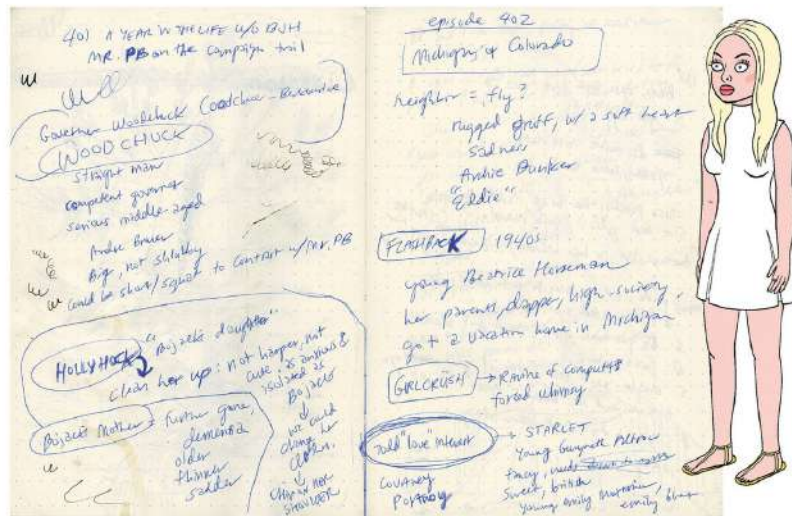 401 A YEAR IN THE LIFE W/O BJH
MR. PB on the campaign trail
Governor Woodchuck Coodchuck-Berkowitz
WOODCHUCK
straight man
competent governor
serious middle-aged
Andre Brauer
Big, not shlubby
could be short/squat to contrast w/ Mr. PB
HOLLYHOCK
"Bojack's daughter"
clean her up: not harper, not
cute, as anxious &
isolated as
Bojack
we could
change her
clothes.
change her
SHOULDER
Bojack's Mother = further gone,
dementia
older
thinner
sadder
episode 402
Michigan of Colorado
neighbor = fly?
rugged gruff, w/ a soft heart
sadness
Archie Bunker
"Eddie"
FLASHBACK 1940s
young Beatrice Horseman
her parents, dapper, high-society,
go to a vacation home in Michigan
GIRLCRUSH → Ravine of computers
forced whimsy
Todd "love" interest → STARLET
Young Gwyneth Paltrow
fancy,
sweet, british
young emily mortimer,
emily blunt
COURTNEY
PORTNOY